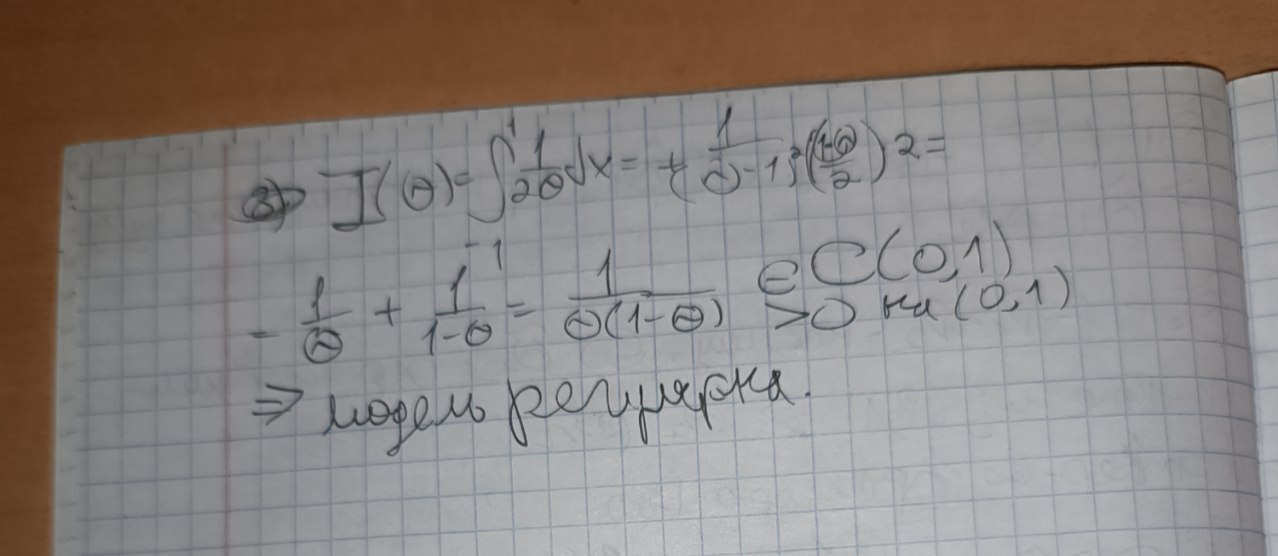 3) I(θ) = ∫₋₁¹ 1/(2θ) dx = + 1/(θ-1)² · ((1-θ)/2) 2 =
= 1/θ + 1/(1-θ) = 1/(θ(1-θ)) ∈ C(0,1) >0 на (0,1)
⇒ модель регулярна.